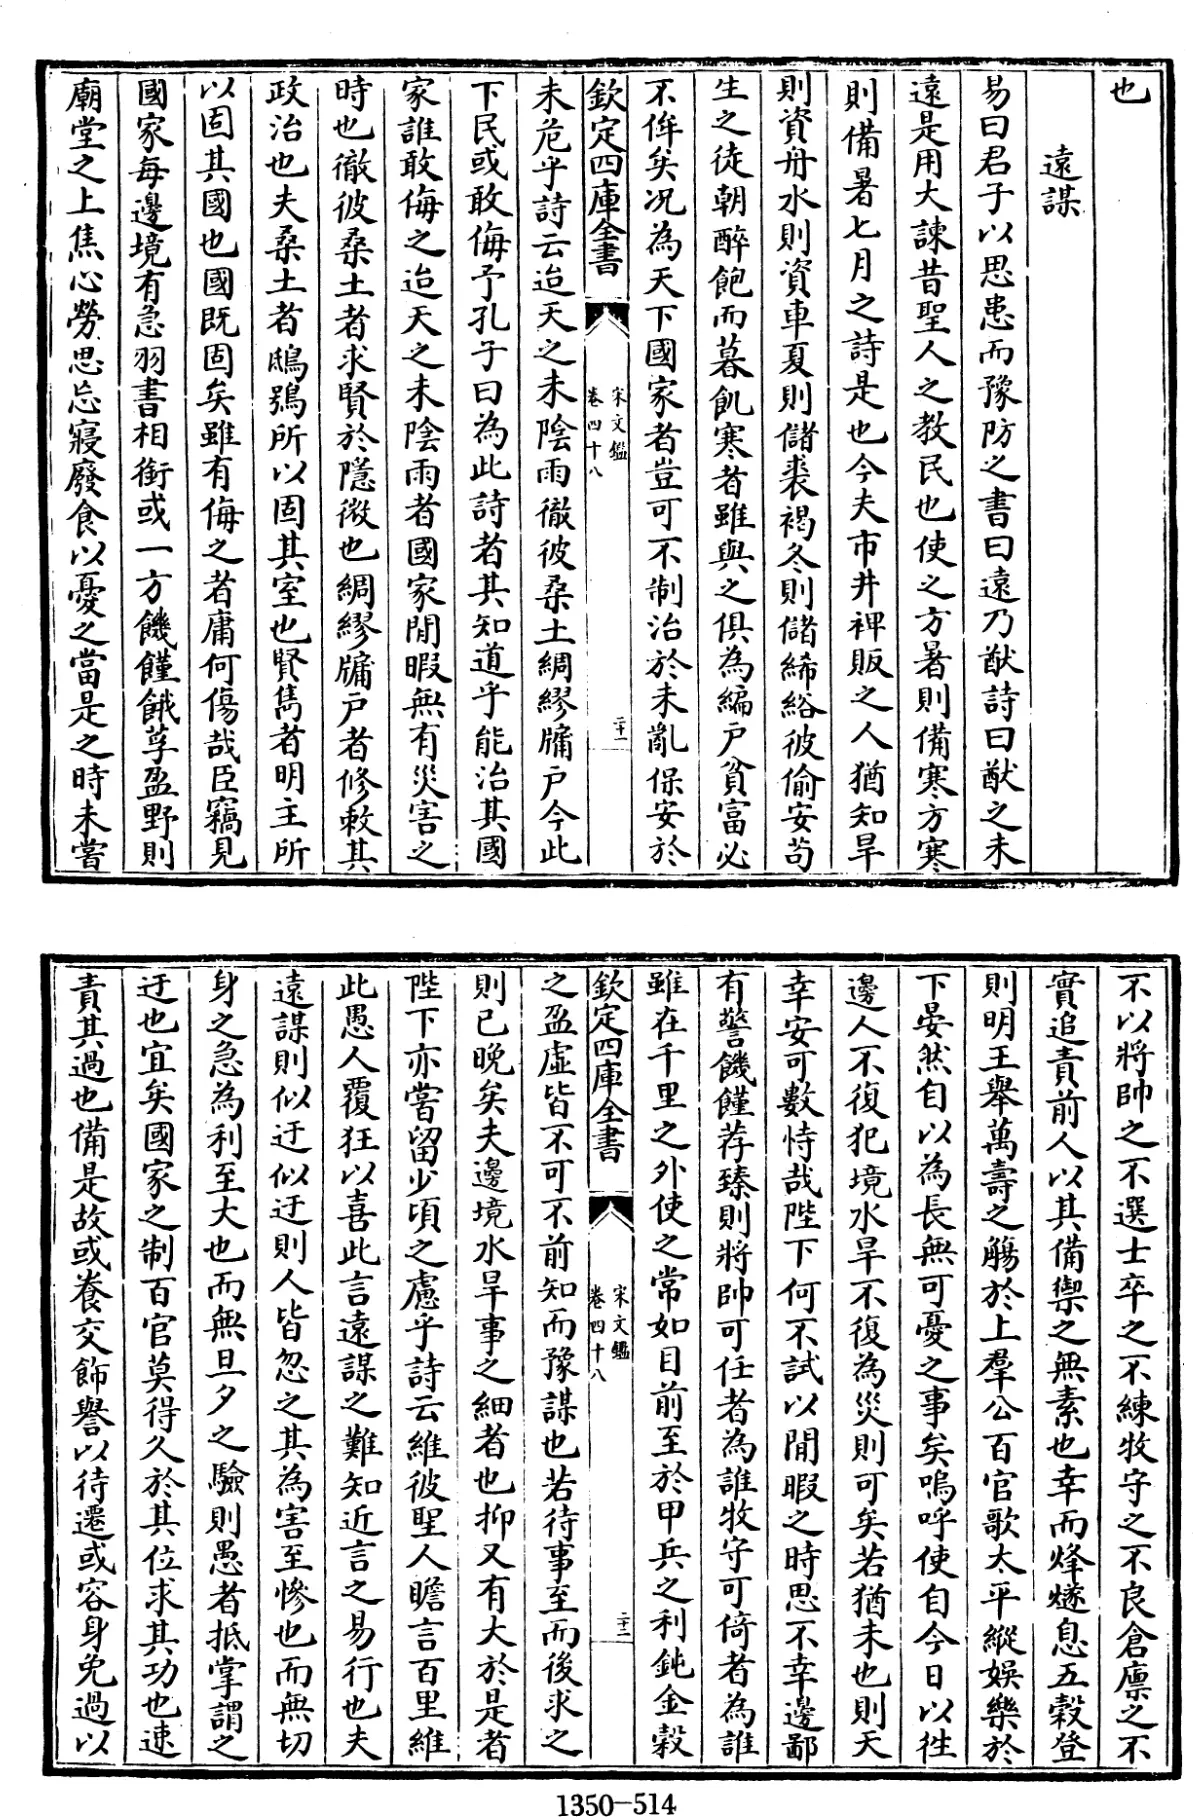 也
遠謀
易曰君子以思患而豫防之書曰逺乃猷詩曰猷之未
逺是用大諫昔聖人之教民也使之方暑則備寒方寒
則備暑七月之詩是也今夫市井裨販之人猶知旱
則資舟水則資車夏則儲裘褐冬則儲絺綌彼偷安茍
生之徒朝醉飽而暮飢寒者雖與之俱為編户貧富必
不侔矣况為天下國家者豈可不制治於未亂保安於
欽定四庫全書
宋文鑑
卷四十八
二十一
未危乎詩云迨天之未隂雨徹彼桑土綢繆牖户今此
下民或敢侮予孔子曰為此詩者其知道乎能治其國
家誰敢侮之迨天之未陰雨者國家閒暇無有災害之
時也徹彼桑土者求賢於隱微也綢繆牖户者修敕其
政治也夫桑土者鴟鴞所以固其室也賢雋者明主所
以固其國也國既固矣雖有侮之者庸何傷哉臣竊見
國家每邊境有急羽書相銜或一方饑饉餓莩盈野則
廟堂之上焦心勞思忘寢廢食以憂之當是之時未嘗
不以將帥之不選士卒之不練牧守之不良倉廩之不
實追責前人以其備禦之無素也幸而烽燧息五榖登
則明王舉萬壽之觴於上羣公百官歌太平縱娯樂於
下晏然自以為長無可憂之事矣嗚呼使自今日以徃
邊人不復犯境水旱不復為災則可矣若猶未也則天
幸安可數恃哉陛下何不試以閒暇之時思不幸邊鄙
有警饑饉荐臻則將帥可任者為誰牧守可倚者為誰
雖在千里之外使之常如目前至於甲兵之利鈍金榖
欽定四庫全書
宋文鑑
卷四十八
二十二
之盈虛皆不可不前知而豫謀也若待事至而後求之
則已晚矣夫邊境水旱事之細者也抑又有大於是者
陛下亦嘗留少頃之慮乎詩云維彼聖人瞻言百里維
此愚人覆狂以喜此言逺謀之難知近言之易行也夫
逺謀則似迂似迂則人皆忽之其為害至慘也而無切
身之急為利至大也而無旦夕之驗則愚者抵掌謂之
迂也宜矣國家之制百官莫得久於其位求其功也速
責其過也備是故或養交飾譽以待遷或容身免過以
1350-514